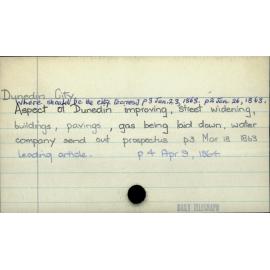 Dunedin City.
Where should be the city p3 Jan. 23, 1863. p4 Jan. 26, 1863.
Aspect of Dunedin improving, street widening,
buildings, pavings, gas being laid down, water
company send out prospectus p3 Mar 18 1863
Leading article. p4 Apr 9, 1864
DAILY TELEGRAPH